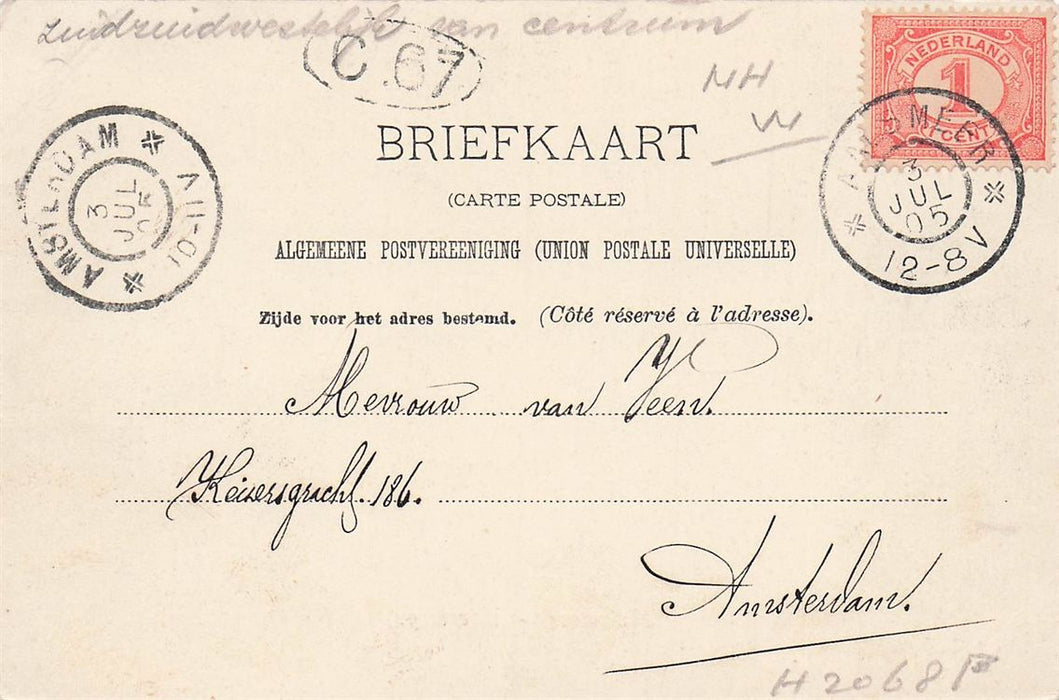 zuidzuidwestelijk van centrum
C.67
NH
W
NEDERLAND
1
CENT
AMSTERDAM
3
JUL
05
10-11V
AALSMEER
3
JUL
05
12-8V
BRIEFKAART
(CARTE POSTALE)
ALGEMEENE POSTVEREENIGING (UNION POSTALE UNIVERSELLE)
Zijde voor het adres bestemd. (Côté réservé à l'adresse).
Mevrouw van Veen.
Keizersgracht. 186.
Amsterdam.
H2068